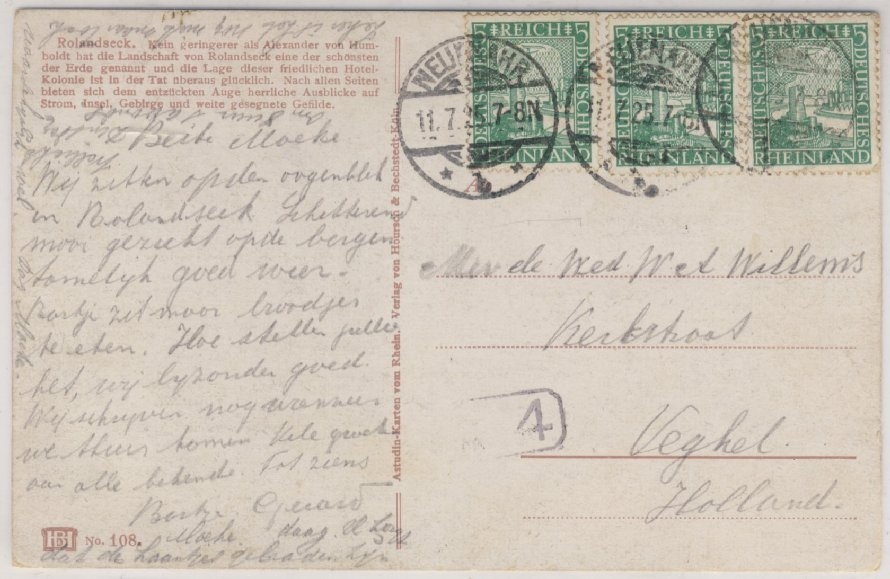 Rolandseck. Kein geringerer als Alexander von Hum-
boldt hat die Landschaft von Rolandseck eine der schönsten
der Erde genannt und die Lage dieser friedlichen Hotel-
Kolonie ist in der Tat überaus glücklich. Nach allen Seiten
bieten sich dem entzückten Auge herrliche Ausblicke auf
Strom, Insel, Gebirge und weite gesegnete Gefilde.
Beste Moeke
Wij zitten op den oogenblik
in Rolandseck Schitterend
mooi gezicht op de bergen
tamelijk goed weer.
Bortje zit mooi broodjes
te eten. Hoe stellen jullie
het, wij byzonder goed
Wij schrijven nog wanneer
we thuis komen Vele groeten
aan alle bekende. Tot ziens
Bortje Gerard
Moeke. daag
dat de haantjes gebraden zijn
HBI
No. 108.
Astudin-Karten vom Rhein. Verlag von Hoursch & Bechstedt, Köln.
DEUTSCHES REICH 5
RHEINLAND
DEUTSCHES REICH 5
RHEINLAND
5 REICH 5 DEUTSCHES
RHEINLAND
NEUENAHR
11.7.25.7-8N
NEUENAHR
11.7.25.7-8
8N
Mevr de Wed W A Willems
Kerkstraat
4
Veghel.
Holland.